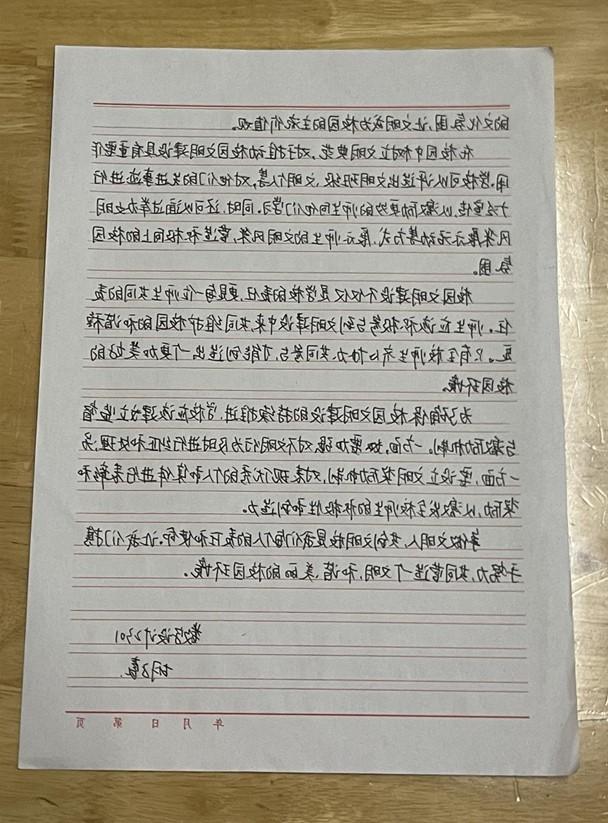 的文化氛围,让文明成为校园的主流价值观。
在校园中树立文明典范,对于推动校园文明建设具有重要作
用。学校可以评选出文明班级、文明个人等,对他们的先进事迹进行
广泛宣传,以激励更多的师生向他们学习。同时,还可以通过举办文明
风采展示活动等方式,展示师生的文明风采,营造积极向上的校园
氛围。
校园文明建设不仅仅是学校的责任,更是每一位师生共同的责
任。师生应该积极参与到文明建设中来,共同维护校园的和谐稳
定。只有全校师生齐心协力,共同参与,才能创造出一个更加美好的
校园环境。
为了确保校园文明建设的持续推进,学校应该建立监督
与激励机制。一方面,要加强对不文明行为及时进行纠正和处理;另
一方面,要设立文明奖励机制,对表现优秀的个人和集体进行表彰和
奖励,以激发全校师生的积极性和创造力。
争做文明人,共创文明校是我们每个人的责任和使命。让我们携
手努力,共同营造一个文明、和谐、美丽的校园环境。
数字设计2301
胡子
年 月 日 第 页